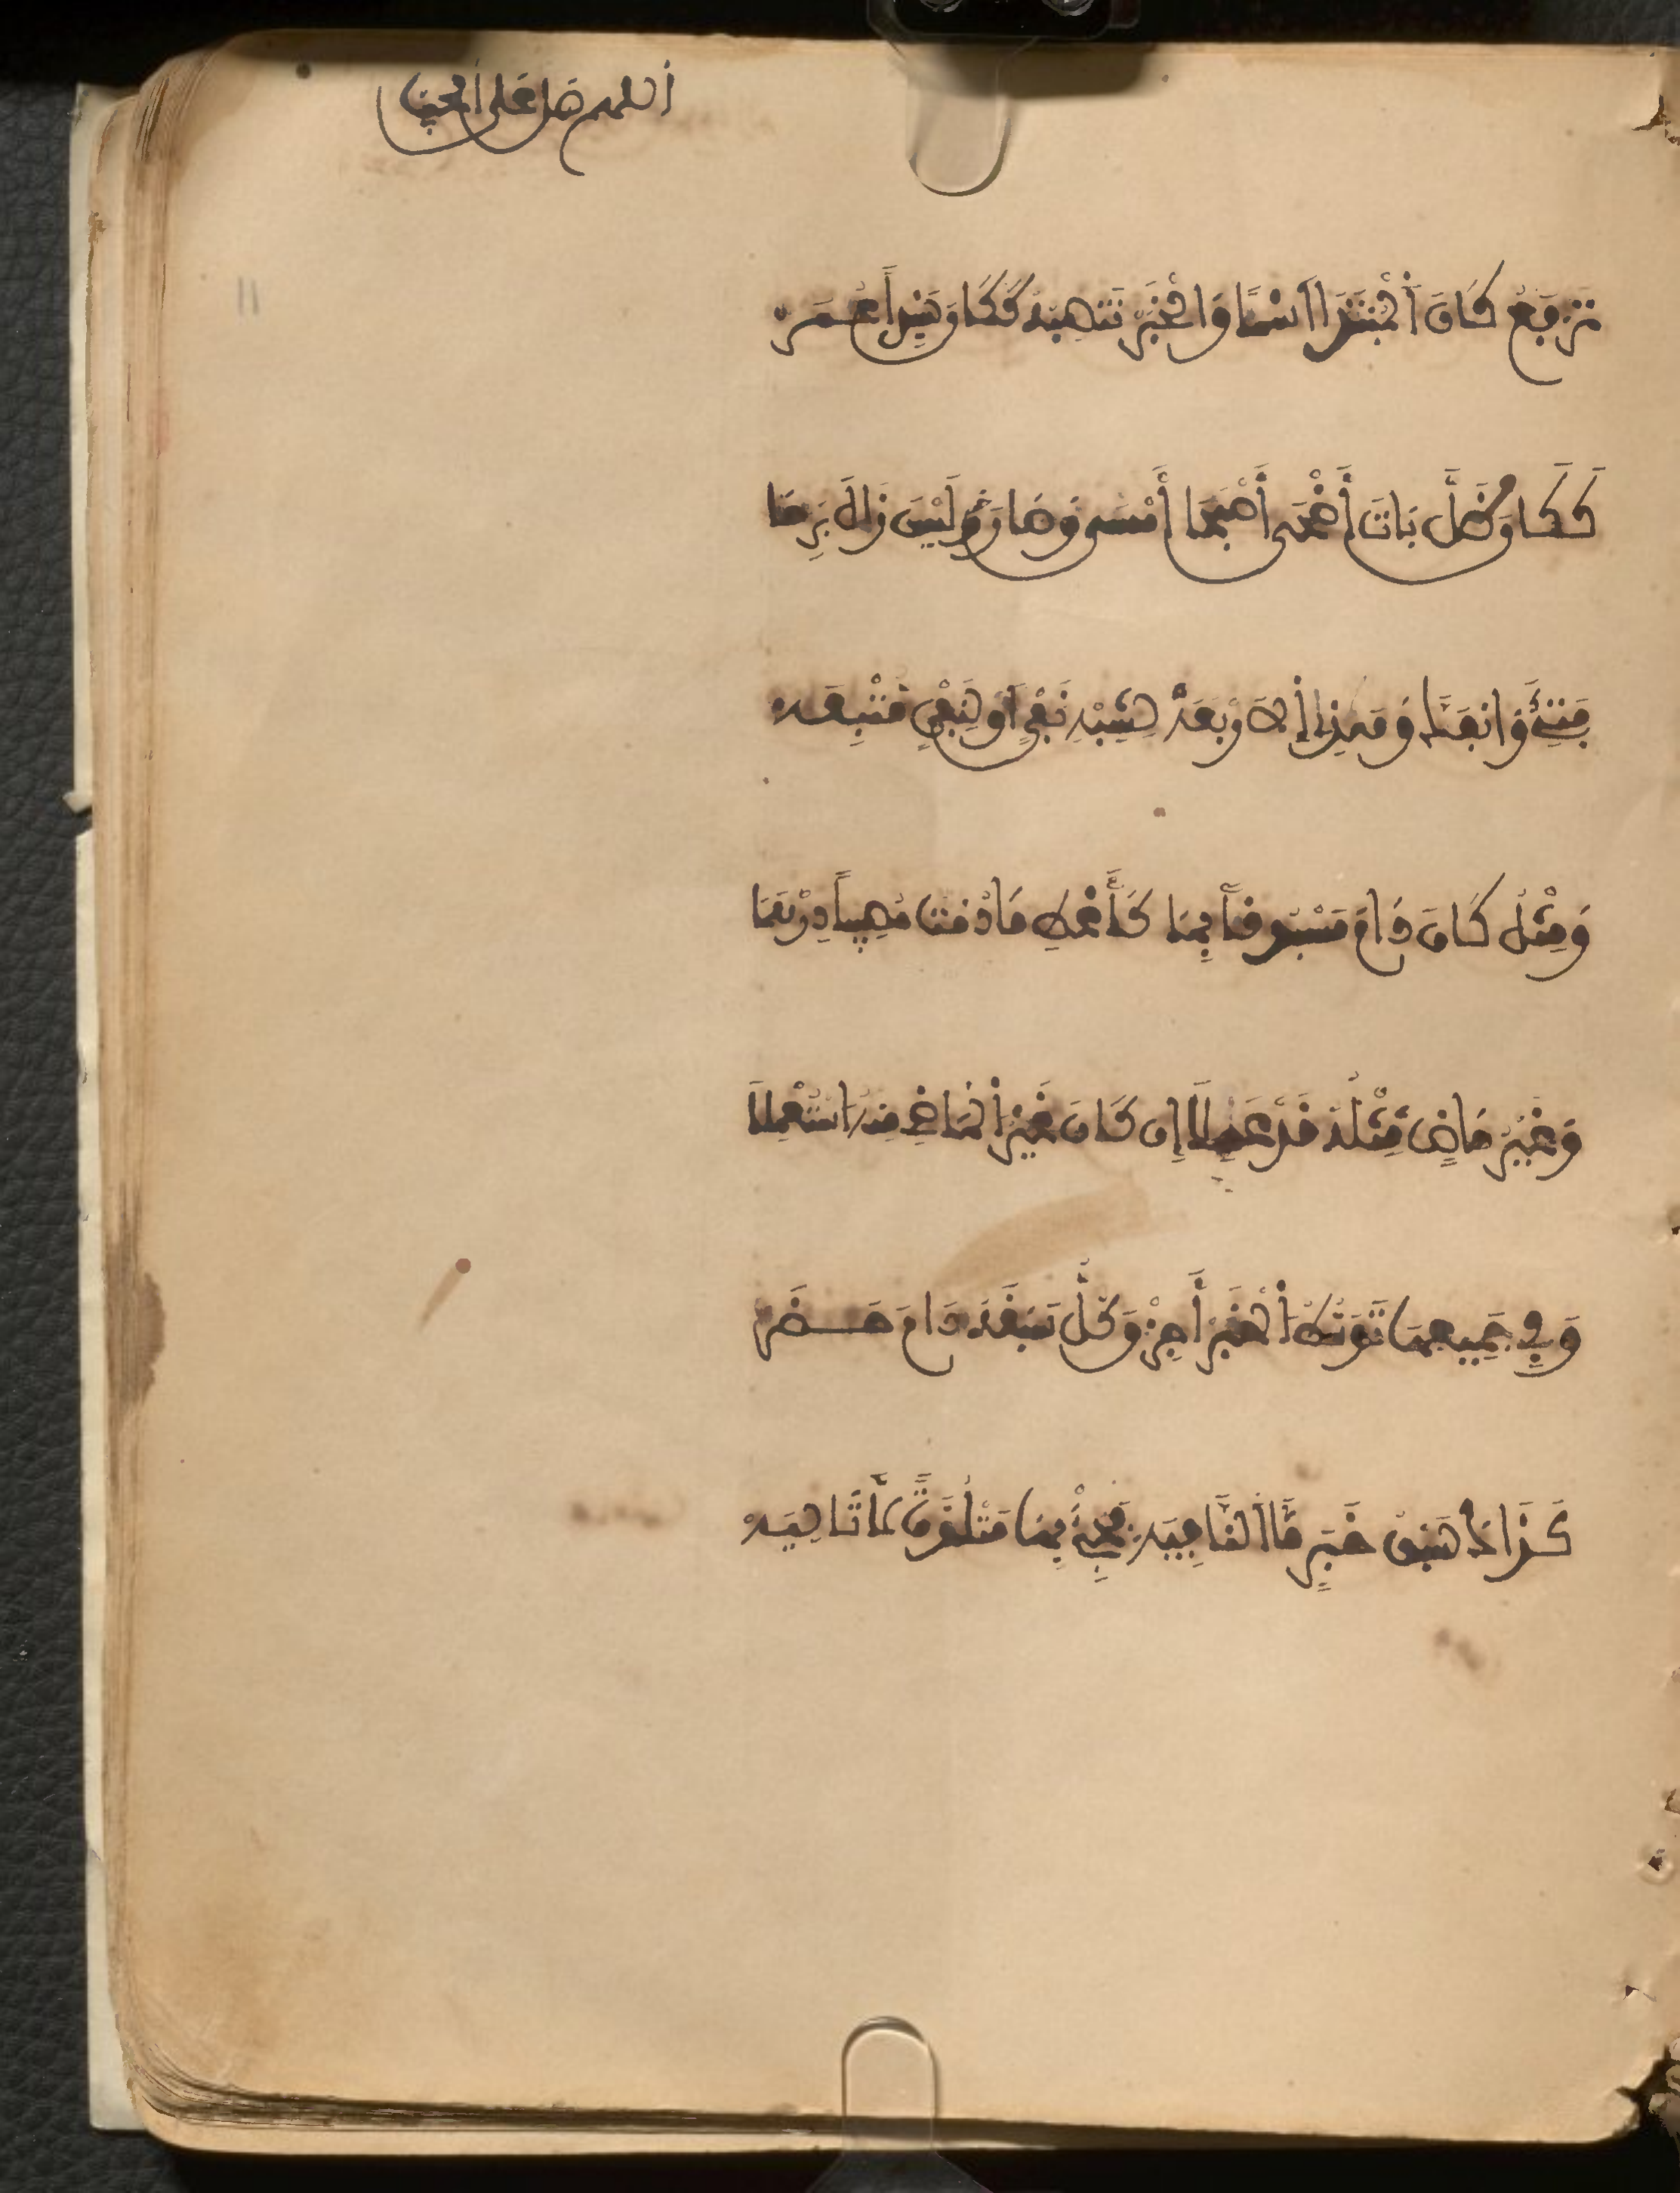 اللهم صل على
تَرْفَعُ كَانَ الْمُبْتَدَا اسْمًا وَالْخَبَرْ تَنْصِبُهُ كَكَانَ سَيِّداً عُمَرْ
كَكَانَ ظَلَّ بَاتَ أَضْحَى أَصْبَحَا أَمْسَى وَصَارَ وَلَيْسَ زَالَ بَرِحَا
فَتِئَ وَانْفَكَّ وَهَذِا اْلاَرْبَعَهْ لِشِبْهِ نَفْيٍ أَوْ لِنَفْيٍ مُتْبَعَهْ
وَمِثْلُ كَانَ دَامَ مَسْبُوقاً بِمَا كَأَعْطِ مَا دُمْتَ مُصِيباً دِرْهَمَا
وَغَيْرُ مَاضٍ مِثْلَهُ قَدْ عَمِلاَ إِن كَانَ غَيْرُ الْمَاضِ مِنْهُ اسْتُعْمِلاَ
وَفِي جَمِيعِهَا تَوَسُّطَ الْخَبَرْ أَجِزْ وَكُلٌّ سَبْقَهُ دَامَ حَظَرْ
كَذَاكَ سَبْقُ خَبَرٍ مَا النَّافِيَهْ فَجِئْ بِهَا مَتْلُوَّةً لاَ تَالِيَهْ